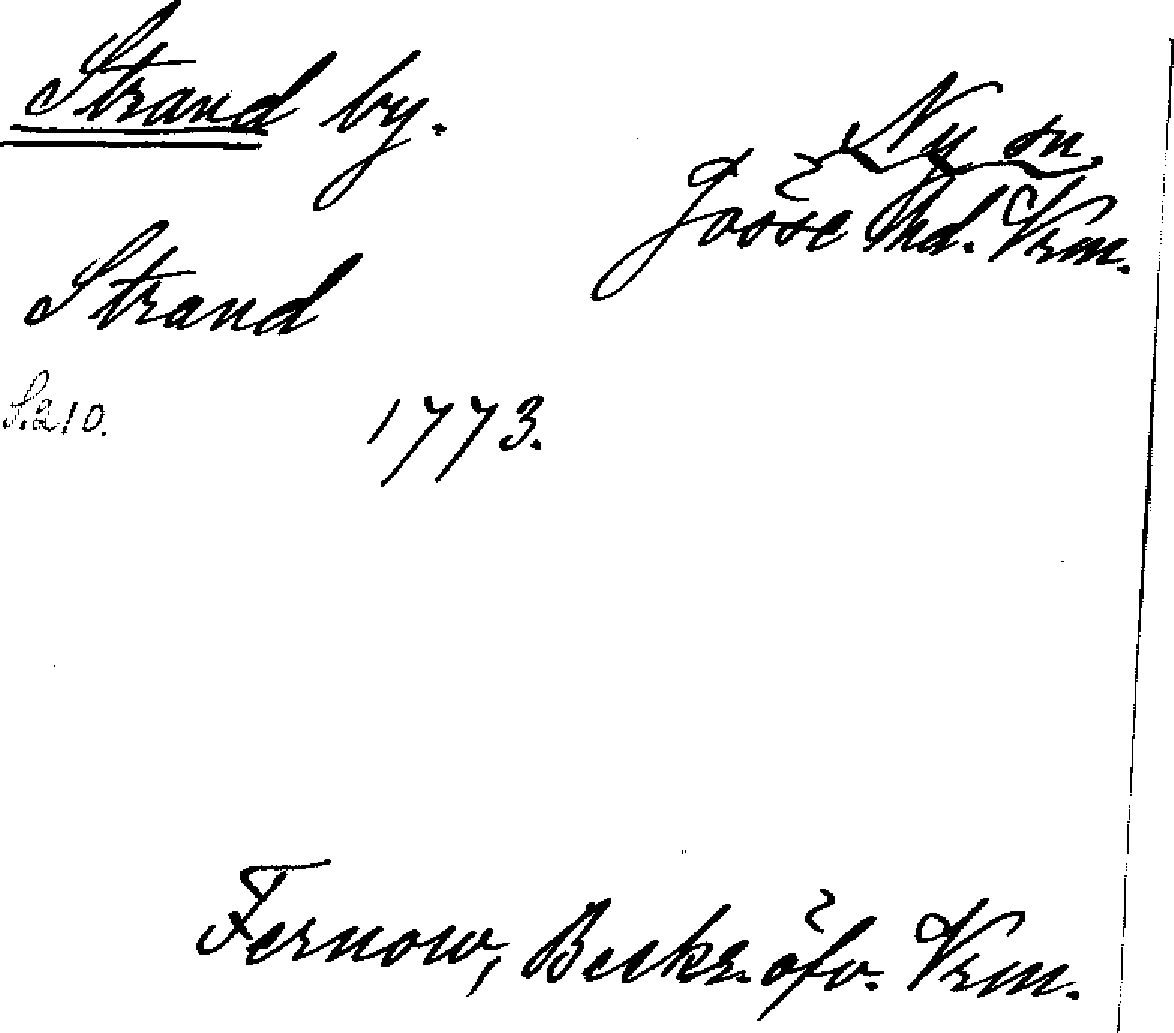 Strand by.
Ny sn.
Jösse hd. Vrm.
Strand
S. 210.
1773.
Fernow, Beskr. öfv. Vrm.